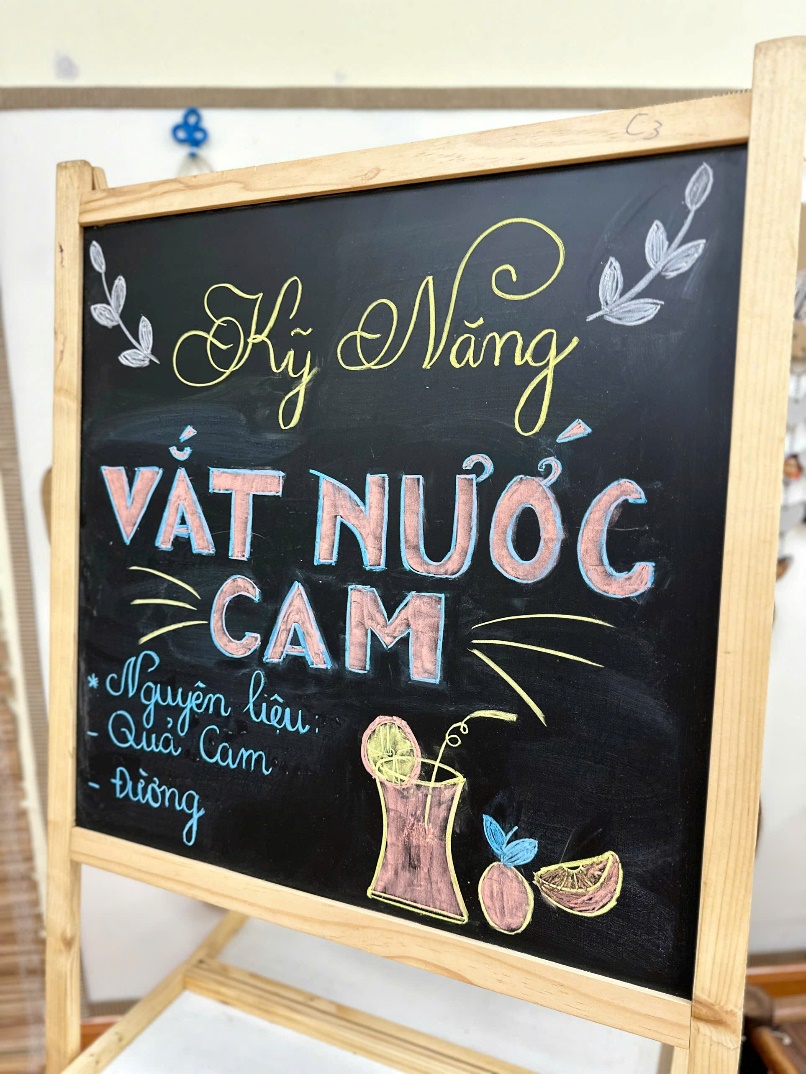 C3
Kỹ Năng
VẮT NƯỚC
CAM
* Nguyên liệu:
- Quả Cam
- Đường